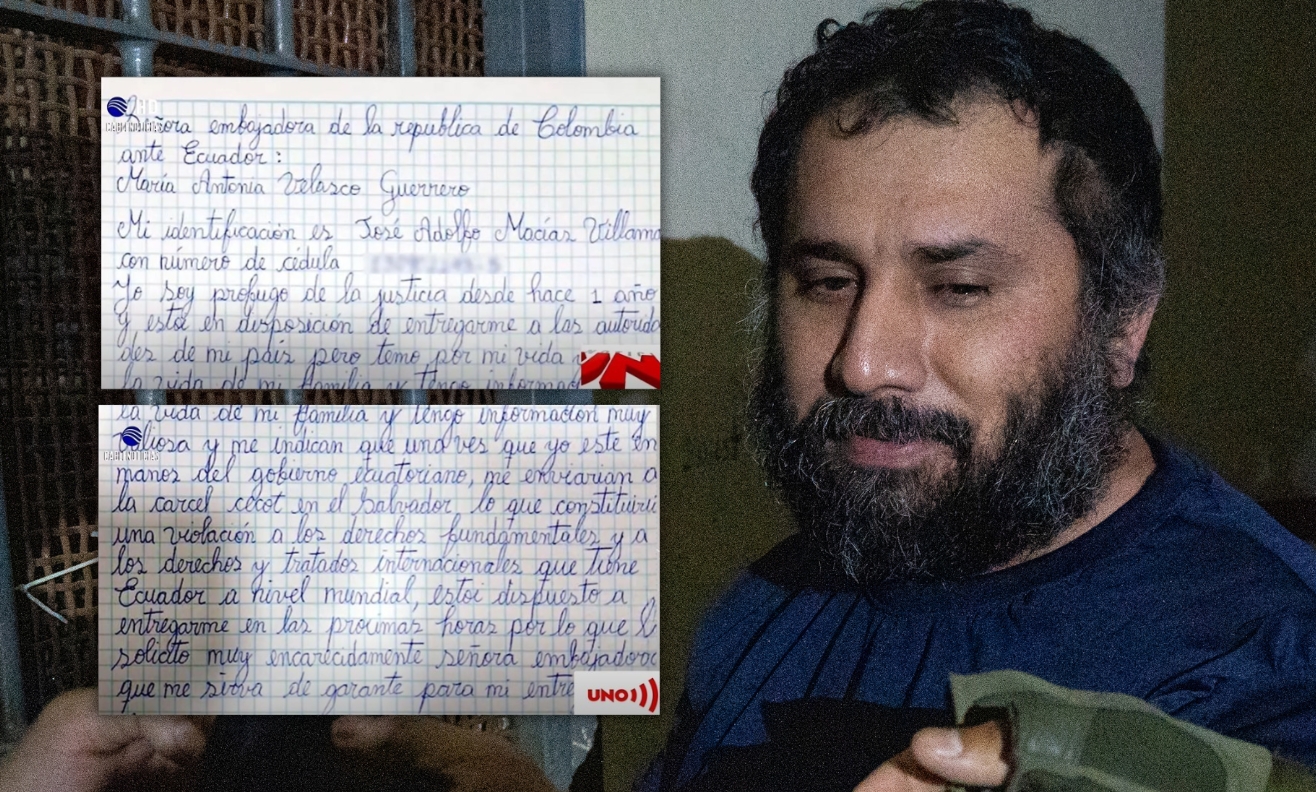 Señora embajadora de la republica de Colombia
ante Ecuador :
María Antonia Velasco Guerrero
Mi identificación es José Adolfo Macías Villama
con número de cédula
Yo soy profugo de la justicia desde hace 1 año
y estoi en disposición de entregarme a las autorida
des de mi país pero temo por mi vida y
la vida de mi familia y tengo informac
la vida de mi familia y tengo información muy
valiosa y me indican que una ves que yo este en
manos del gobierno ecuatoriano, me enviarian a
la carcel cecot en el Salvador lo que constituiri
una violación a los derechos fundamentales y a
los derechos y tratados internacionales que tiene
Ecuador a nivel mundial, estoi dispuesto a
entregarme en las procimas horas por lo que
solicito muy encarecidamente señora embajadora
que me sirva de garante para mi entre
UNO